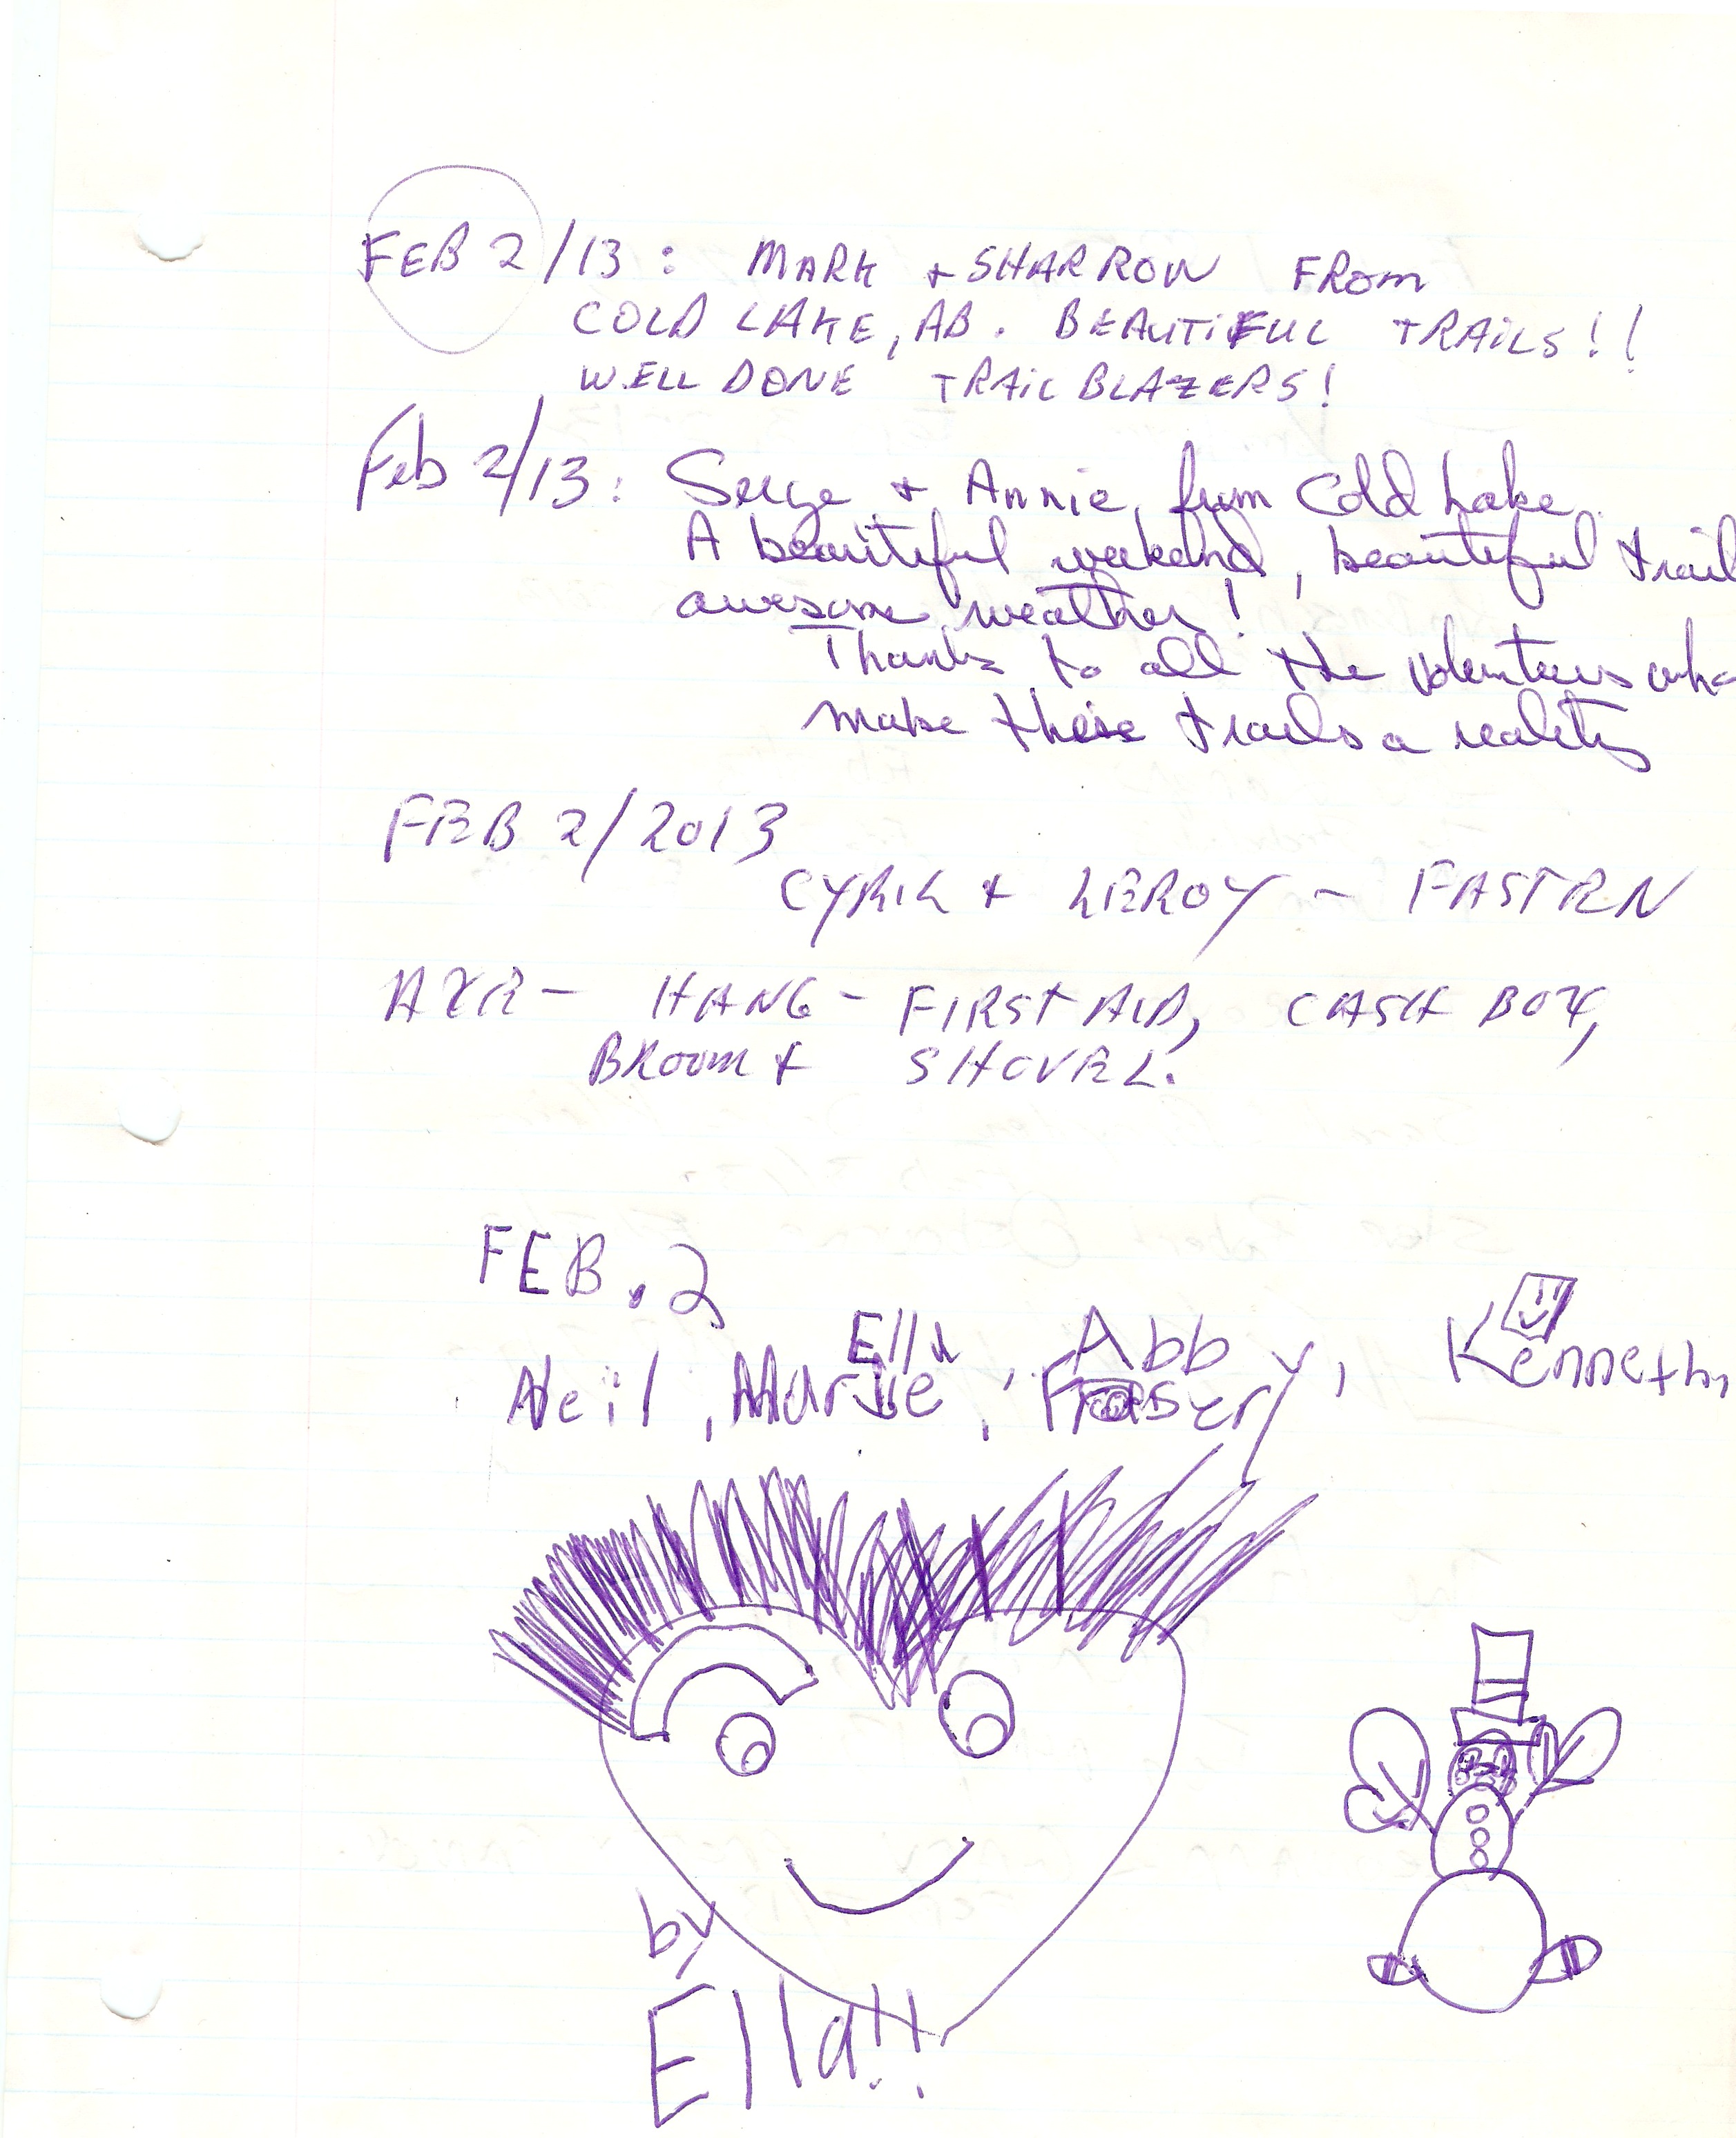 FEB 2/13: MARK + SHARRON FROM
COLD LAKE, AB. BEAUTIFUL TRAILS!!
WELL DONE TRAIL BLAZERS!
Feb 2/13: Serge + Annie, from Cold Lake.
A beautiful weekend, beautiful trail
awesome weather!
Thanks to all the volunteers who
make these trails a reality
FEB 2/2013
CYRIL + LEROY -
HANG - FIRST AID, CASH BOX,
BROOM + SHOVEL.
FEB. 2
Ella, Abby, Kenneth,
Neil, Marjie, Fraser
by
Ella!!